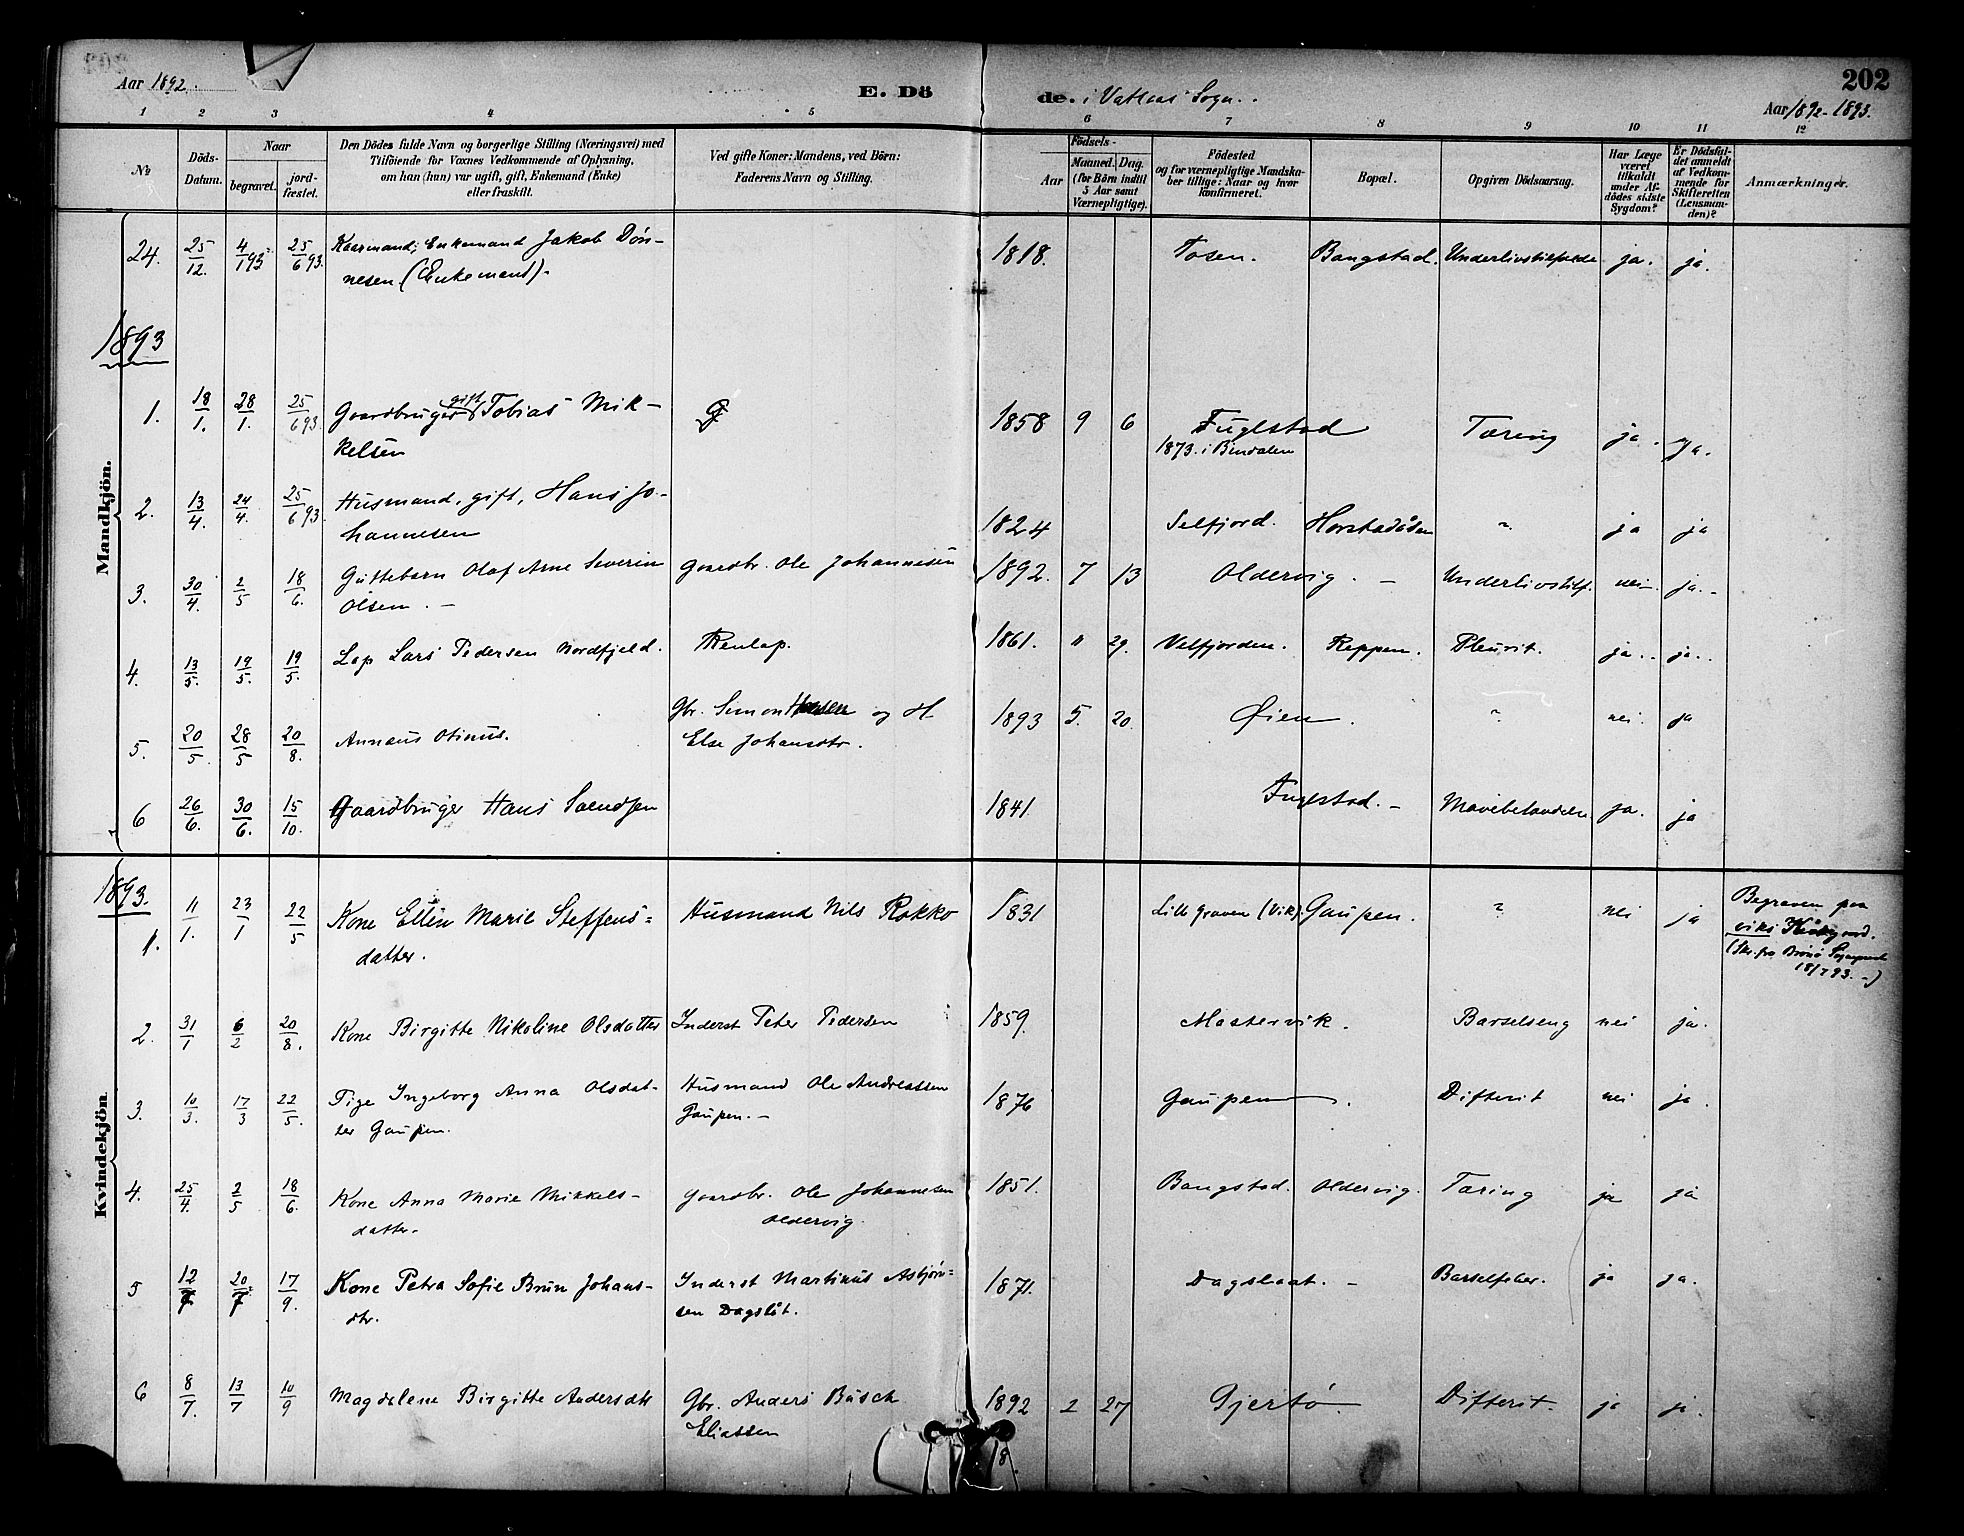 202
Aar 1892.
E. Dö
de. i Vatlaas Sogn.
Aar 1892-1893.
1 2 3 4 5 6 7 8 9 10 11 12
№
Döds-Datum.
Naar
begravet.
jord-fæstet.
Den Dödes fulde Navn og borgerlige Stilling (Næringsvei) med
Tilföiende for Voxnes Vedkommende af Oplysning,
om han (hun) var ugift, gift, Enkemand (Enke)
eller fraskilt.
Ved gifte Koner: Mandens, ved Börn:
Faderens Navn og Stilling.
Födsels-
Aar
Maaned. Dag.
(for Börn indtil
5 Aar samt
Værnepligtige).
Födested
og for værnepligtige Mandska-
ber tillige: Naar og hvor
konfirmeret.
Bopæl.
Opgiven Dödsaarsag.
Har Læge
været
tilkaldt
under Af-
dödes sidste
Sygdom?
Er Dödsfal-
det anmeldt
af Vedkom-
mende for
Skifteretten
(Lensman-
den)?
Anmærkninger.
Mandkjön.
24. 25/12. 4/1 93 25/6 93. Kaarmand, Enkemand Jakob Dön- 1818. Tosen. Bangstad. Underlivstilfælde ja. ja.
nesen (Enkemand).
1893
1. 18/1. 28/1. 25/6 93. Gaardbruger gift Tobias Mik- G 1858 9 6 Fuglstad Tæring ja. ja.
kelsen 1873. i Bindalen
2. 13/4. 24/4. 25/6 93. Husmand, gift, Hans Jo- 1824 Selfjord. Horstadåsen " ja ja
hannesen
3. 30/4. 2/5 18/6. Guttebarn Olaf Arne Severin Gaardbr. Ole Johannesen 1892. 7 13 Oldervig. - Underlivstilf. nei. ja. -
Olsen. -
4. 13/5. 19/5. 19/5. Lap Lars Pedersen Nordfjeld. Renlap. 1861. " 29. Velfjorden. Reppen. Pleurit. ja. ja.
5. 20/5 28/5 20/8. Annæus Otinus. Gbr. Simon Hansen og H. 1893 5. 20. Øien. " nei. ja
Else Johansdtr.
6 26/6. 30/6. 15/10. Gaardbruger Hans Svendsen 1841 Fuglstad. - Mavebetændelse ja. ja
Kvindekjön.
1893.
1. 11/1. 23/1 22/5 Kone Ellen Marie Steffens= Husmand Nils Rokko 1831 Lille graven (Vik) Gaupen. " nei ja Begraven paa
datter. viks Kirkegaard.
(Skr. fra Brönö Sogneprest
18/7 93. -)
2. 31/1 6/2 20/8. Kone Birgitte Nikoline Olsdatter Inderst Peter Pedersen 1859. Mastervik. Barselseng nei ja.
3. 10/3. 17/3 22/5. Pige Ingeborg Anna Olsdat- Husmand Ole Andreassen 1876 Gaupen. Difterit nei ja.
ter Gaupen. Gaupen. -
4. 25/4. 2/5 18/6. Kone Anna Marie Mikkels- Gaardbr. Ole Johannesen 1851. Bangstad. Oldervig. Tæring ja ja
datter. Oldervig.
5 12/7 20/7 17/9. Kone Petra Sofie Brun Johans- Inderst Martinus Asbjörn= 1871. Dagslaat. - Barselfeber. ja ja.
dtr. sen Dagslåt.
6 8/7. 13/7 10/9 Magdalene Birgitte Andersdtr Gbr. Anders Busch 1892 2 27 Gjertö. Difterit. ja ja.
Eliassen
18.